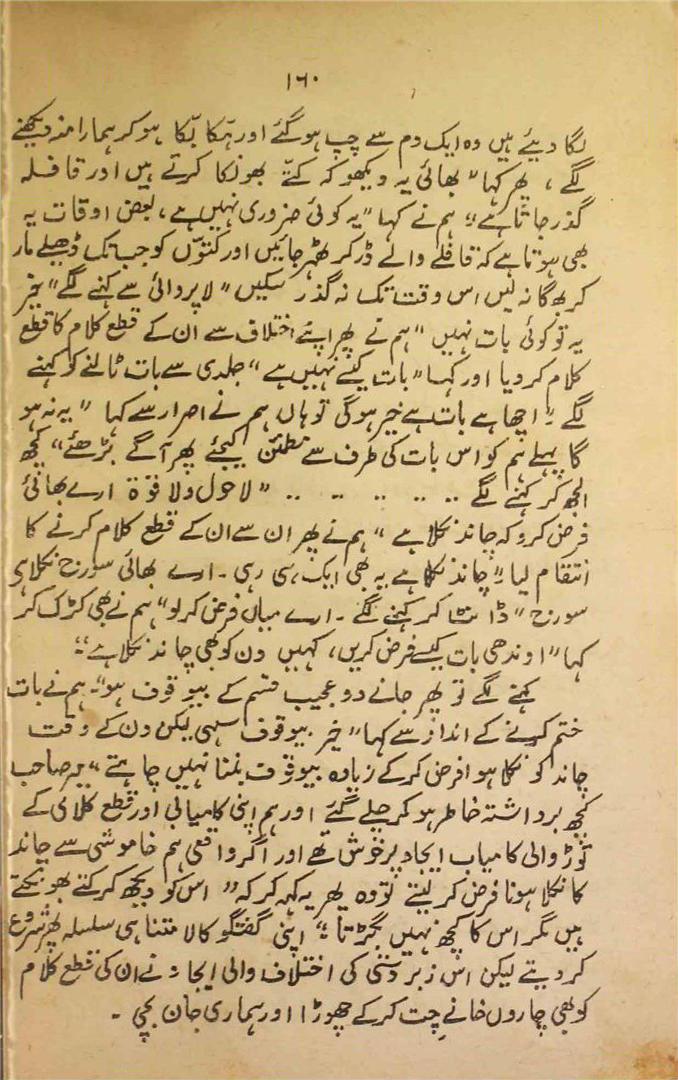 ۱۶۰
لگا دیئے ہیں وہ ایک دم سے چپ ہوگئے اور ہکّا بکّا ہو کر ہمارا منہ دیکھنے
لگے ، پھر کہا "بھائی یہ دیکھو کہ کتّے بھونکا کرتے ہیں اور قافلہ
گذر جاتا ہے" ہم نے کہا "یہ کوئی ضروری نہیں ہے ، بعض اوقات یہ
بھی ہوتا ہے کہ قافلے والے ڈر کر ٹھہر جائیں اور کتّوں کو جب تک ڈھیلے مار
کر بھگا نہ لیں اس وقت تک نہ گذر سکیں" لاپروائی سے کہنے لگے "خیر
یہ تو کوئی بات نہیں" ہم نے پھر اپنے اختلاف سے ان کے قطع کلام کا قطع
کلام کر دیا اور کہا "بات کیسے نہیں ہے" جلدی سے بات ٹالنے کو کہنے
لگے "اچھا ہے بات ہے خیر ہوگی توہاں ہم نے اصرار سے کہا "یہ نہ ہو
گا پہلے ہم کو اس بات کی طرف سے مطمئن کیجئے پھر آگے بڑھئے" کچھ
الجھ کر کہنے لگے .. .. .. .. .. "لاحول ولا قوۃ ارے بھائی
فرض کرو کہ چاند نکلا ہے" ہم نے پھر ان سے ان کے قطع کلام کرنے کا
انتقام لیا "چاند نکلا ہے یہ بھی ایک ہی رہی ۔ ارے بھائی سورج نکلا ہی
سورج" ڈانٹا کر کہنے لگے ۔ ارے میاں فرض کرلو" ہم نے بھی کڑک کر
کہا "اوندھی بات کیسے فرض کریں ، کہیں دن کو بھی چاند نکلا ہے"
کہنے لگے تو پھر جانے دو عجیب قسم کے بیوقوف ہو" ۔ ہم نے بات
ختم کرنے کے انداز سے کہا "خیر بیوقوف سہی لیکن دن کے وقت
چاند کو نکلا ہوا فرض کر کے زیادہ بیوقوف بننا نہیں چاہتے" میر صاحب
کچھ برداشتہ خاطر ہو کر چلے گئے اور ہم اپنی کامیابی اور قطع کلامی کے
توڑ والی کامیاب ایجاد پر خوش تھے اور اگر واقعی ہم خاموشی سے چاند
کا نکلا ہونا فرض کر لیتے تو وہ پھر یہ کہہ کر کہ "اس کو دیکھ کر کتے بھونکتے
ہیں مگر اس کا کچھ نہیں بگڑتا" اپنی گفتگو کا لامتناہی سلسلہ پھر شروع
کر دیتے لیکن اس زبردستی کی اختلاف والی ایجاد نے ان کی قطع کلام
کو بھی چاروں خانے چت کر کے چھوڑا اور ہماری جان بچی ۔